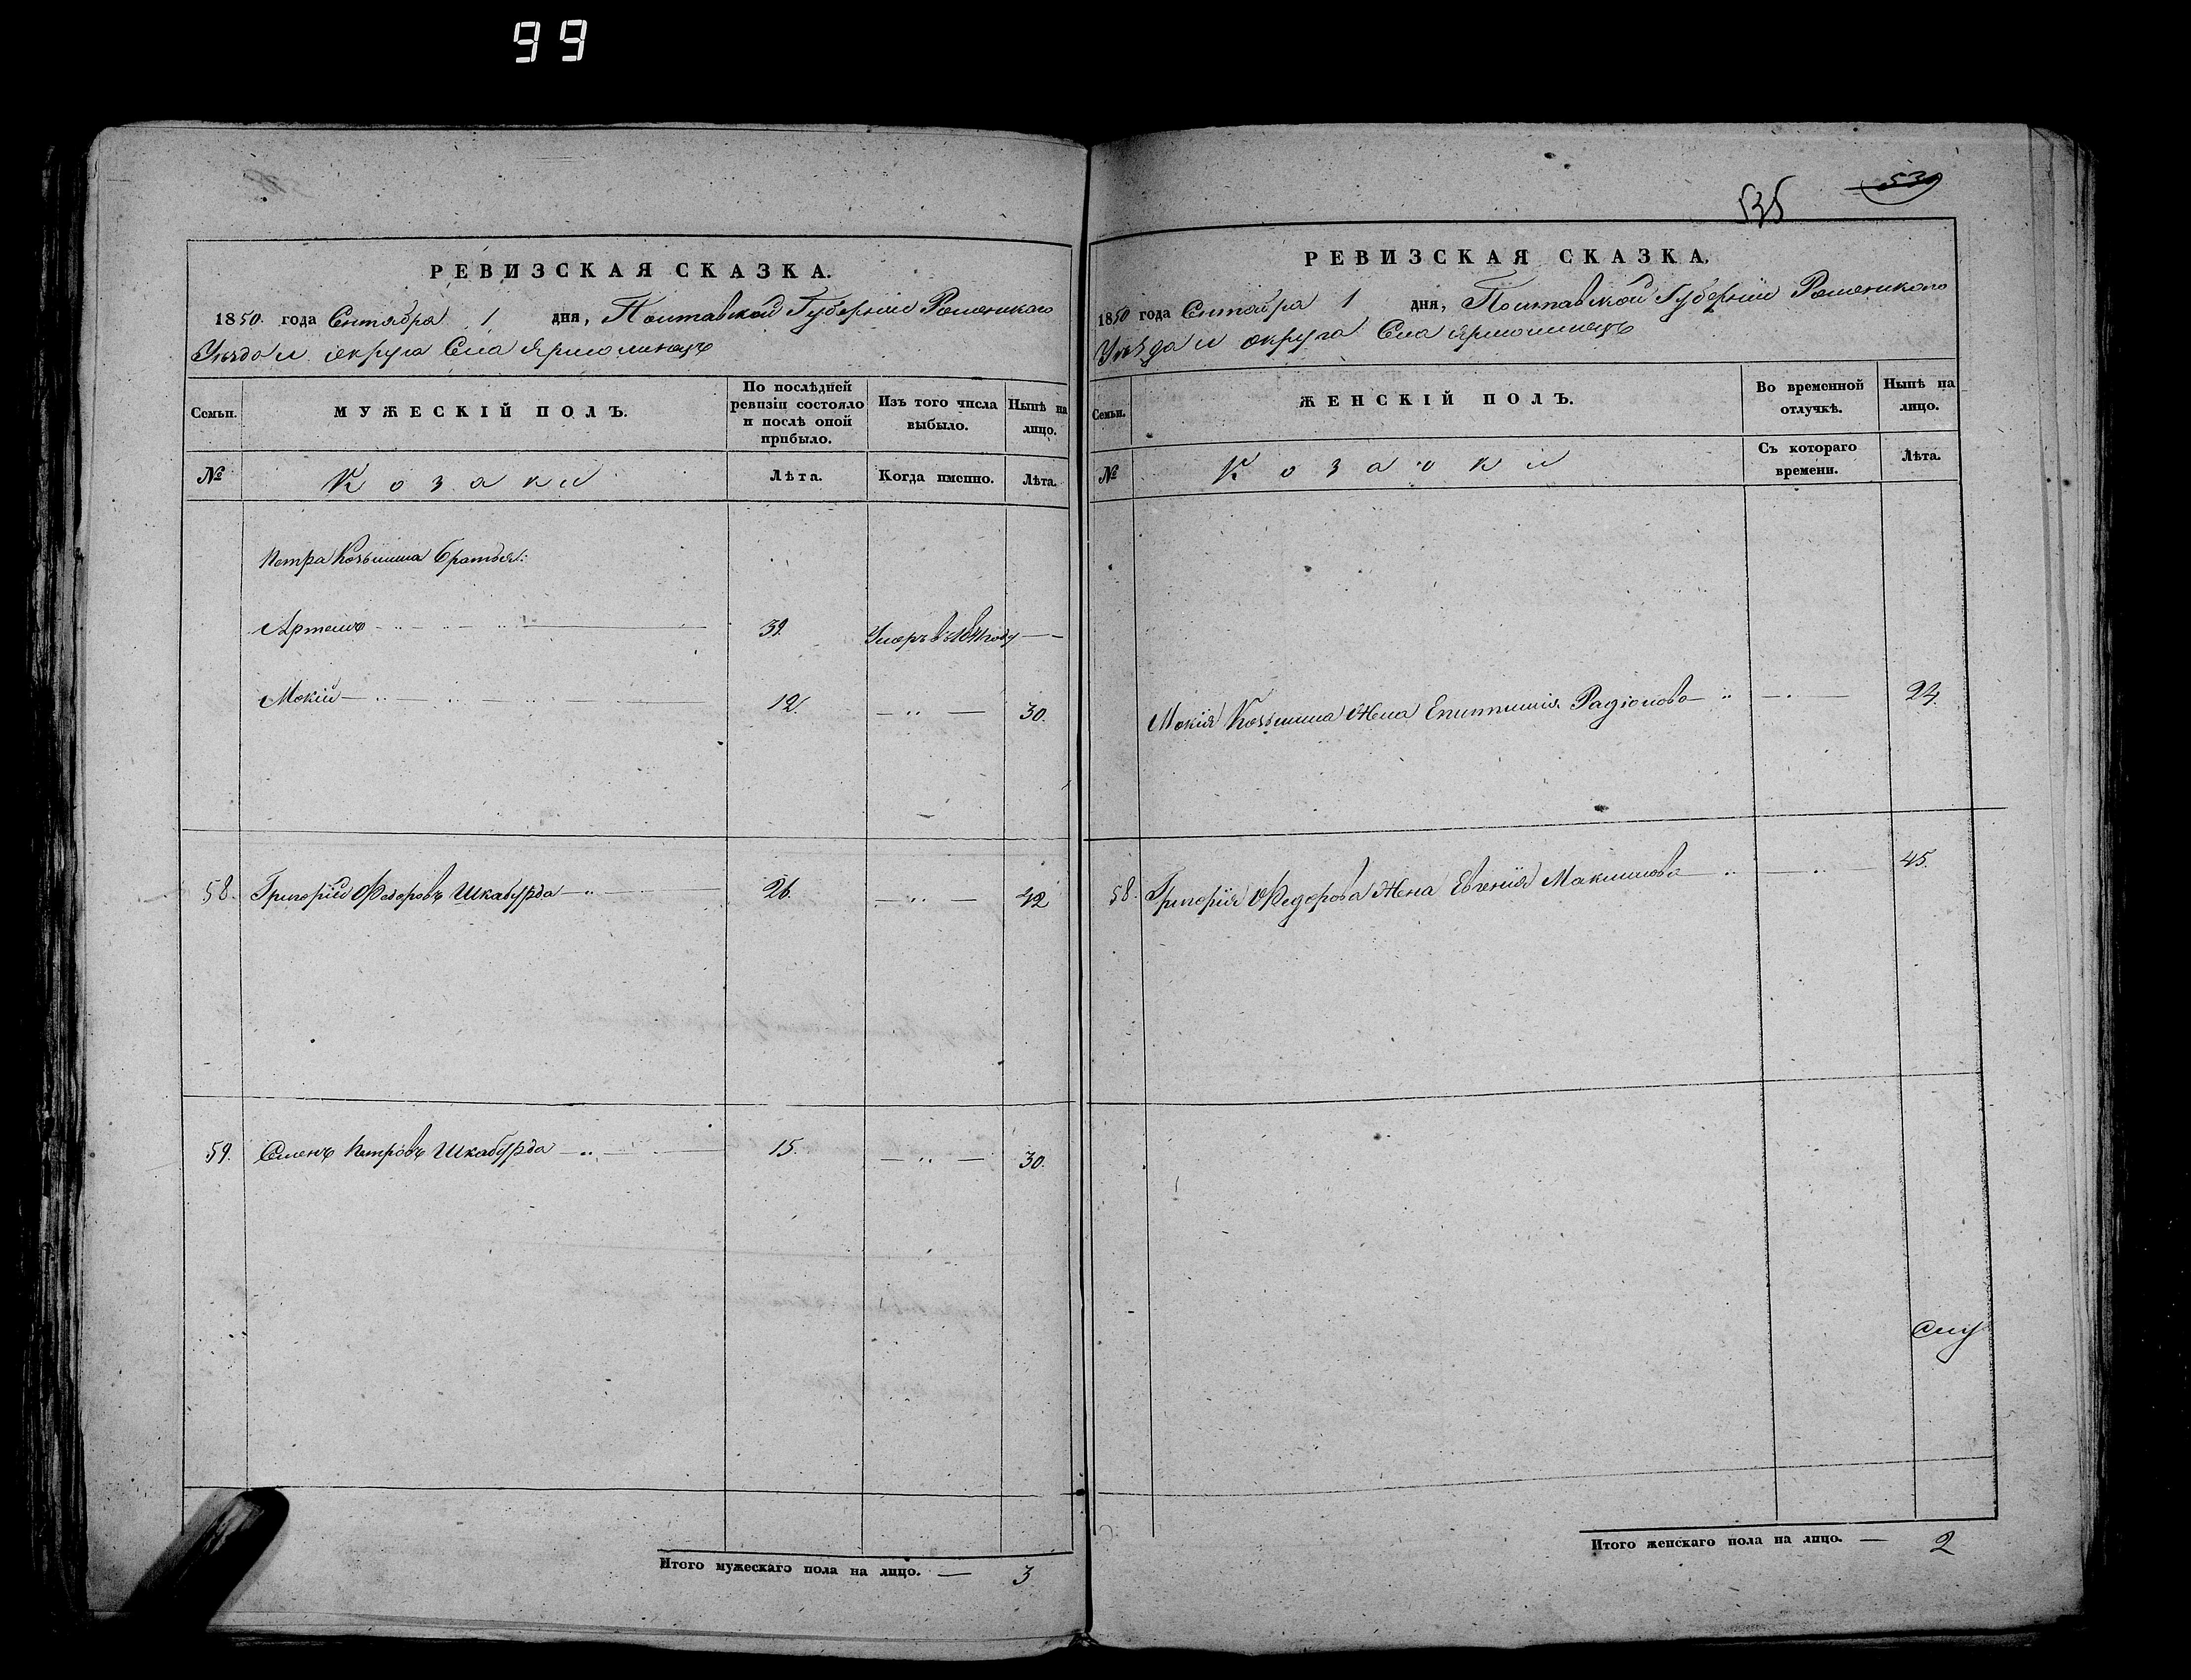 99
РЕВИЗСКАЯ СКАЗКА.
1850. года Сентября 1 дня, Полтавской Губернии Роменского
Уѣзда и округа Села Ярмолинецъ
Семьи.
МУЖЕСКІЙ ПОЛЪ.
По послѣдней ревизіи состояло и послѣ оной прибыло.
Изъ того числа выбыло.
Нынѣ на лицо.
№
Козаки
Лѣта.
Когда именно.
Лѣта.
Петра Козьмина братья:
Артемъ 39. Умеръ въ 1841 году
Мокій 12. 30.
58. Григорій Федоровъ Шкабурда 26. 42
59. Семенъ Петровъ Шкабурда 15. 30.
Итого мужескаго пола на лицо. — 3
535
530
РЕВИЗСКАЯ СКАЗКА.
1850 года Сентября 1 дня, Полтавской Губерніи Роменского
Уѣзда и округа Села Ярмолинецъ
Семьи.
ЖЕНСКІЙ ПОЛЪ.
Во временной отлучкѣ.
Нынѣ на лицо.
№
Козачки
Съ котораго времени.
Лѣта.
Мокія Козьмина Жена Епистимия Радіонова 24.
58. Григорія Федорова Жена Евгенія Максимова 45.
Итого женскаго пола на лицо. — 2